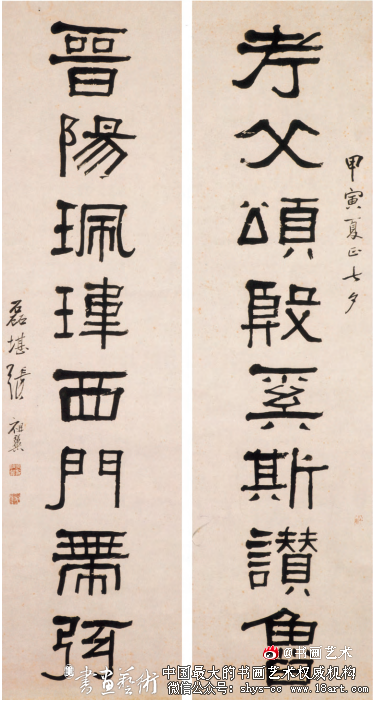 甲寅夏正七夕
考父頌殷奚斯讚魯
晉陽珮瑋西門帶弦
磊堪張祖翼
@书画艺术
書畫藝術
中国最大的书画艺术权威机构
微信公众号: shys-cc www.18art.com